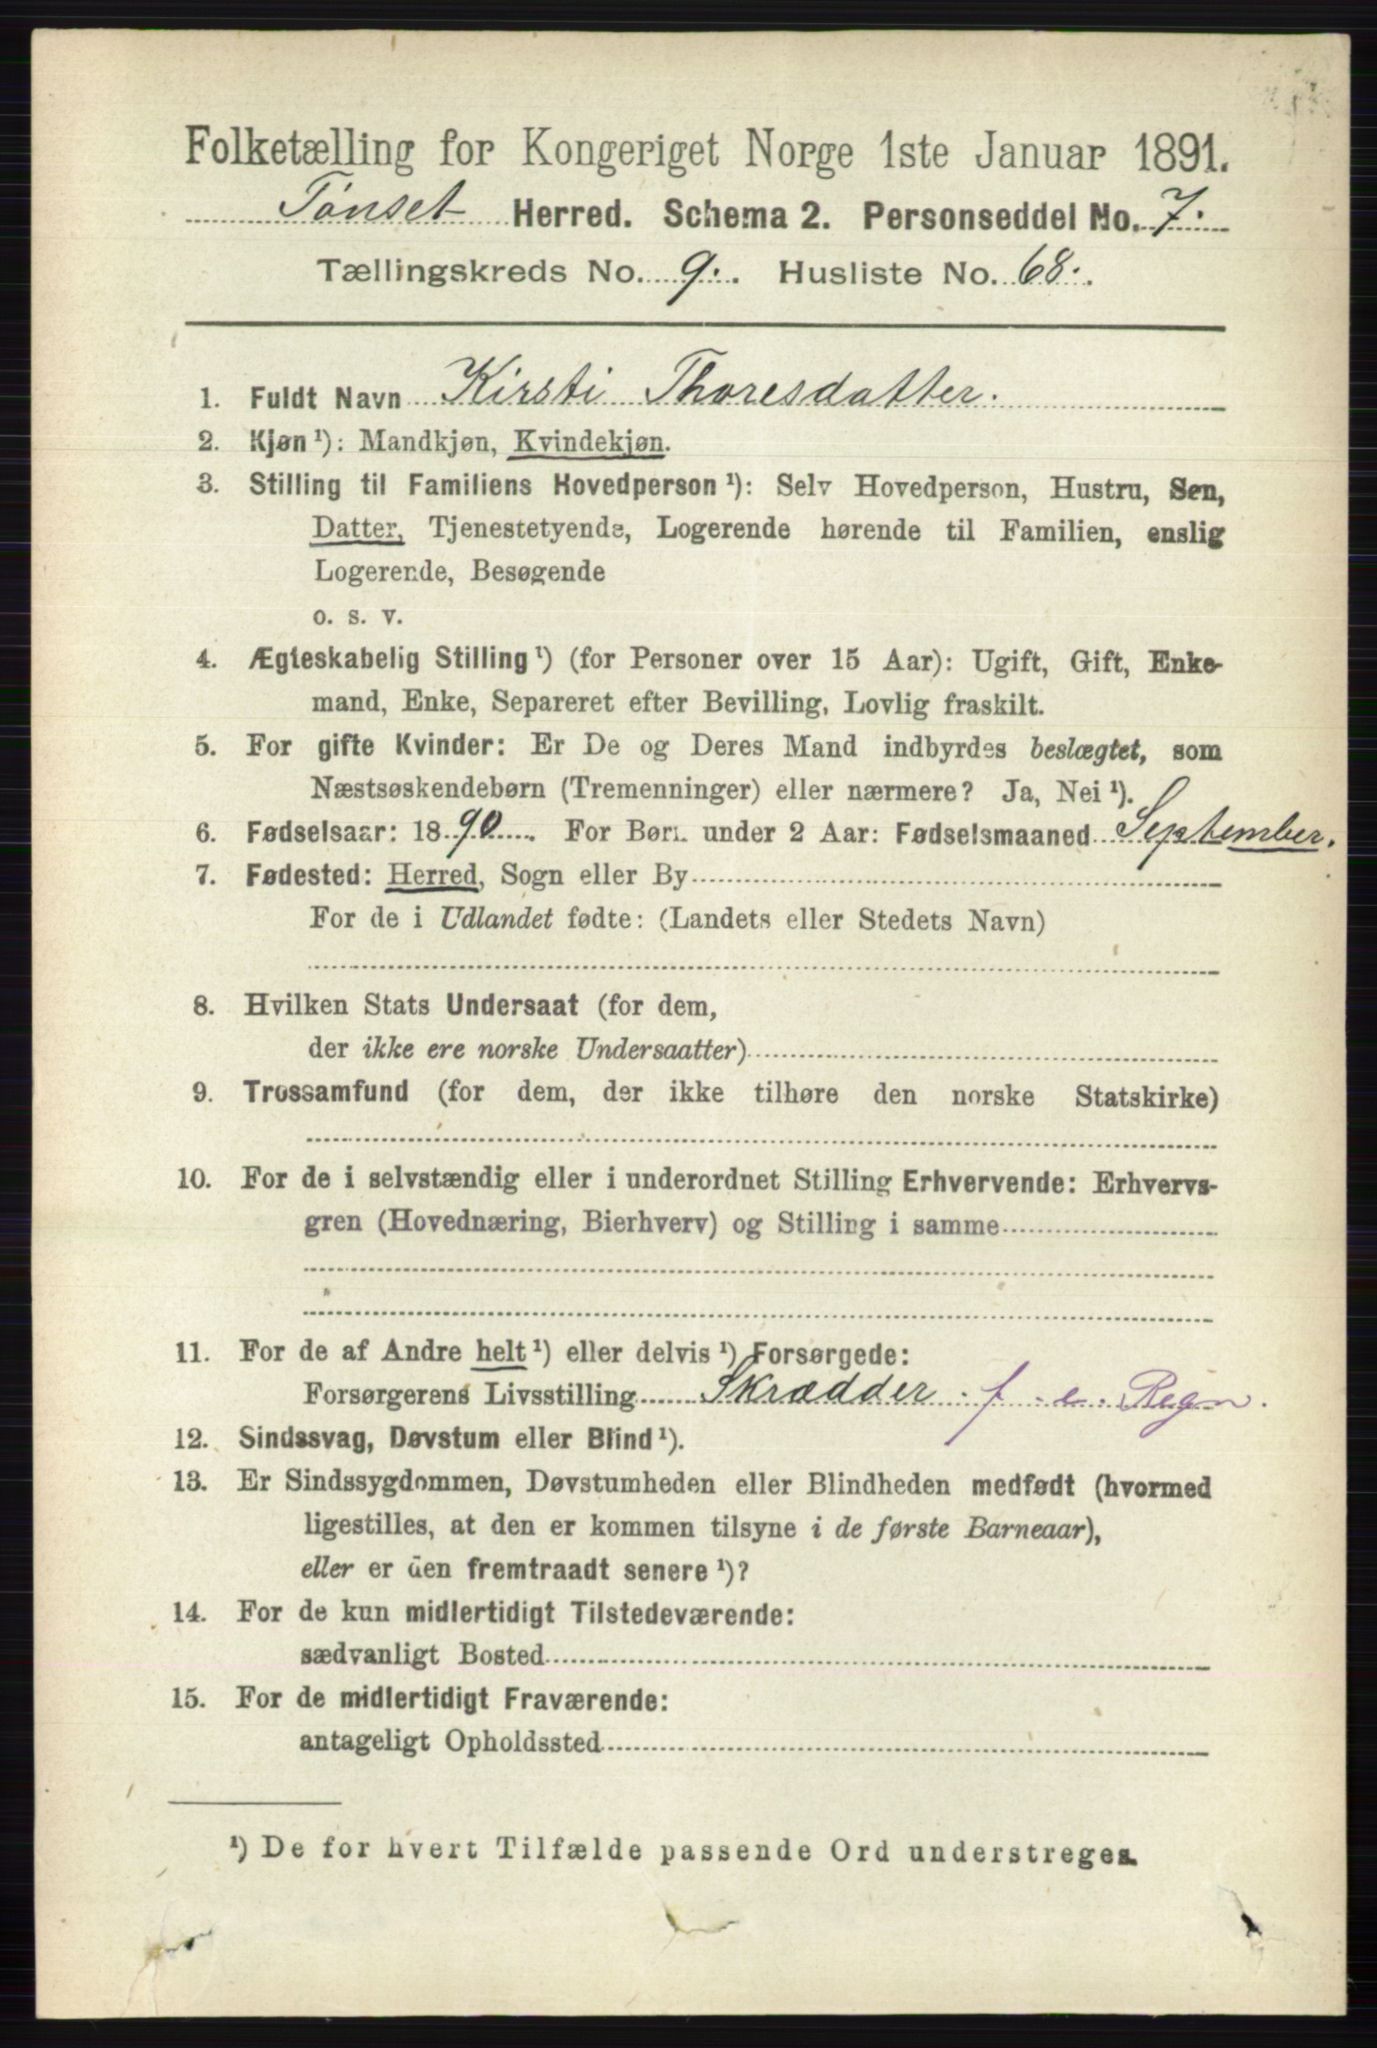 Folketælling for Kongeriget Norge 1ste Januar 1891.
Tønset Herred. Schema 2. Personseddel No. 7.
Tællingskreds No. 9. Husliste No. 68.
1. Fuldt Navn Kirsti Thoresdatter.
2. Kjøn ¹): Mandkjøn, Kvindekjøn.
3. Stilling til Familiens Hovedperson ¹): Selv Hovedperson, Hustru, Søn,
Datter, Tjenestetyende, Logerende hørende til Familien, enslig
Logerende, Besøgende
o. s. v.
4. Ægteskabelig Stilling ¹) (for Personer over 15 Aar): Ugift, Gift, Enke-
mand, Enke, Separeret efter Bevilling, Lovlig fraskilt.
5. For gifte Kvinder: Er De og Deres Mand indbyrdes beslægtet, som
Næstsøskendebørn (Tremenninger) eller nærmere? Ja, Nei ¹).
6. Fødselsaar: 1890. For Børn under 2 Aar: Fødselsmaaned September.
7. Fødested: Herred, Sogn eller By
For de i Udlandet fødte: (Landets eller Stedets Navn)
8. Hvilken Stats Undersaat (for dem,
der ikke ere norske Undersaatter)
9. Trossamfund (for dem, der ikke tilhøre den norske Statskirke)
10. For de i selvstændig eller i underordnet Stilling Erhvervende: Erhvervs-
gren (Hovednæring, Bierhverv) og Stilling i samme
11. For de af Andre helt ¹) eller delvis ¹) Forsørgede:
Forsørgerens Livsstilling Skrædder. f. e. Regn.
12. Sindssvag, Døvstum eller Blind ¹).
13. Er Sindssygdommen, Døvstumheden eller Blindheden medfødt (hvormed
ligestilles, at den er kommen tilsyne i de første Barneaar),
eller er den fremtraadt senere ¹)?
14. For de kun midlertidigt Tilstedeværende:
sædvanligt Bosted
15. For de midlertidigt Fraværende:
antageligt Opholdssted
¹) De for hvert Tilfælde passende Ord understreges.